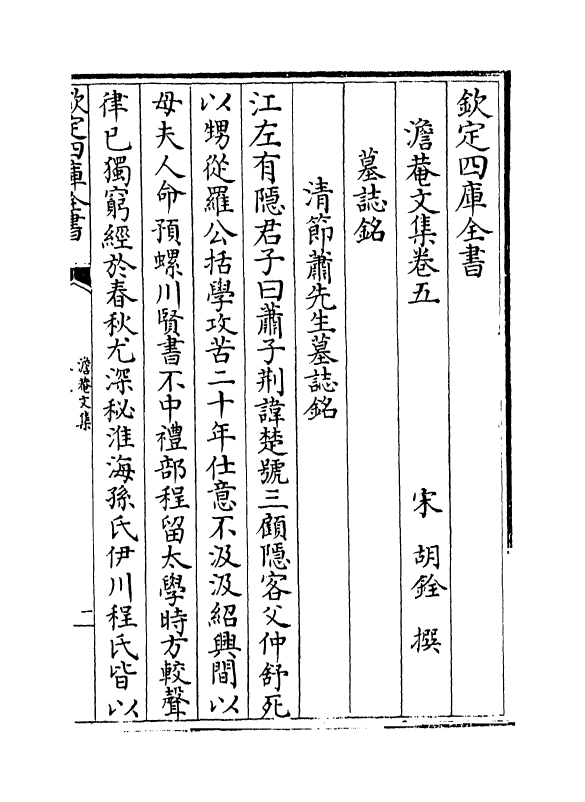 欽定四庫全書
澹菴文集卷五
宋 胡銓 撰
墓誌銘
清節蕭先生墓誌銘
江左有隱君子曰蕭子荆諱楚號三顧隱客父仲舒死
以甥從羅公括學攻苦二十年仕意不汲汲紹興間以
母夫人命預螺川賢書不中禮部程留太學時方較聲
律已獨窮經於春秋尤深秘淮海孫氏伊川程氏皆以
欽定四庫全書
澹菴文集